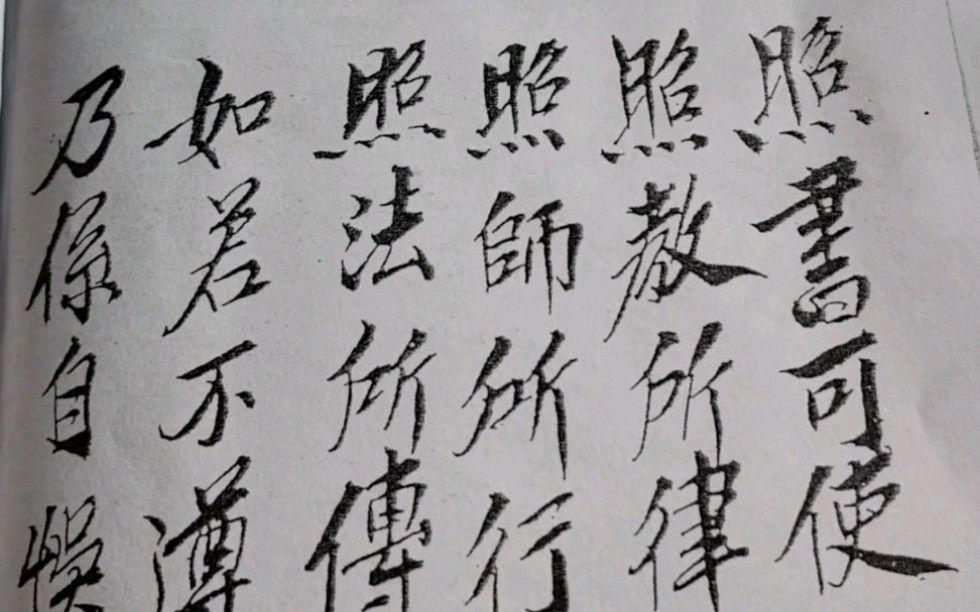 照書可使
照教所律
照師所行
照法所傳
如若不遵
乃係自悞